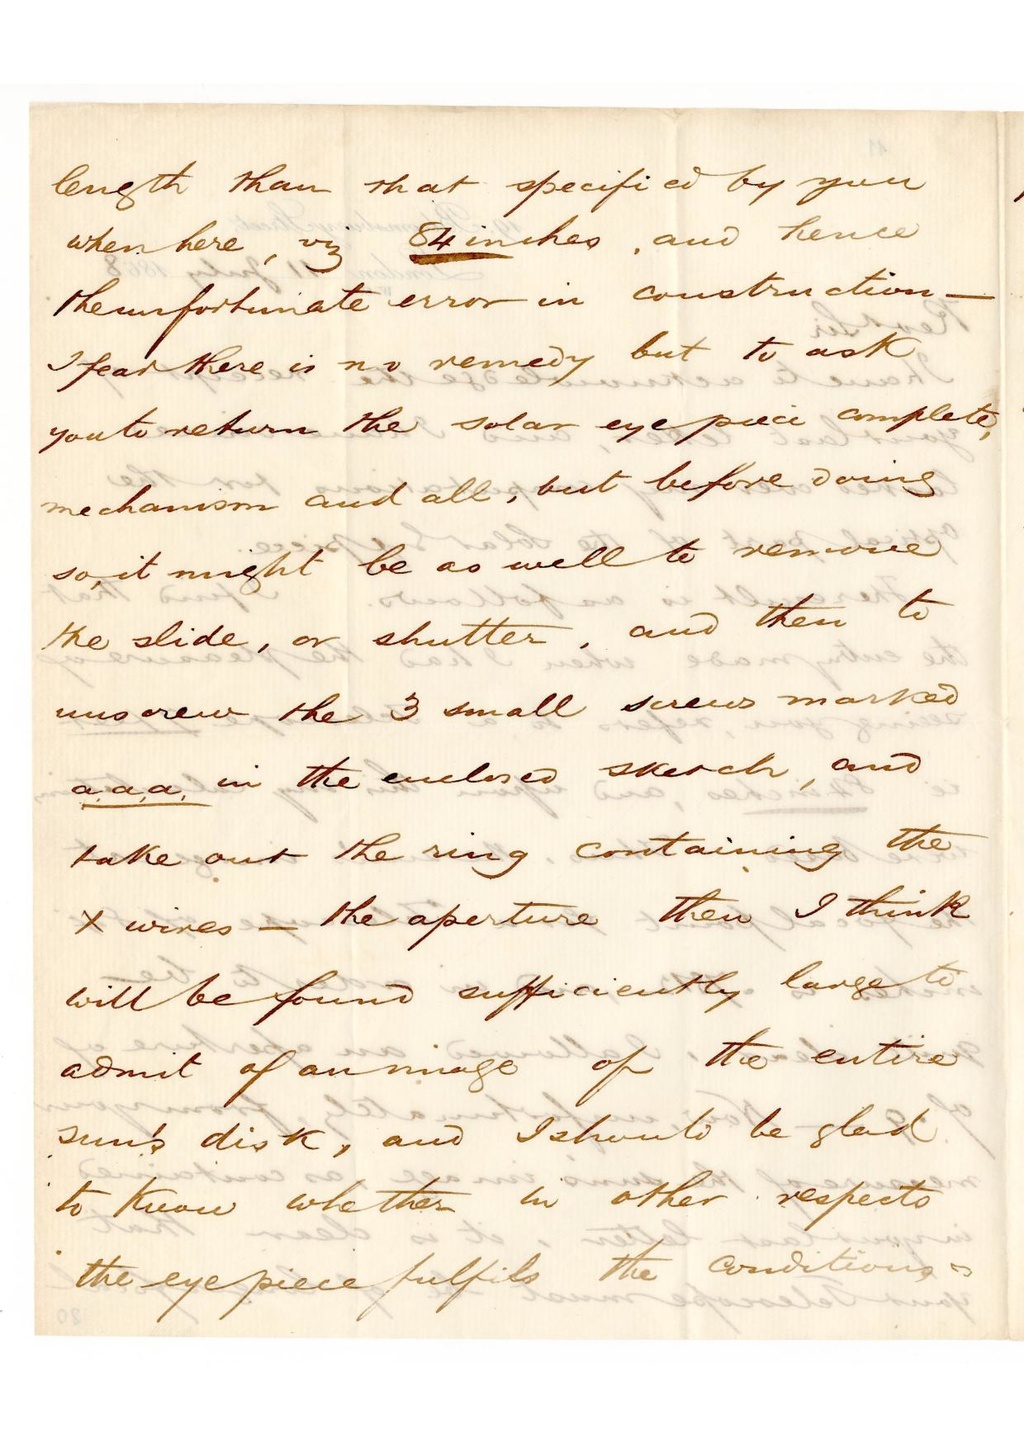 length than that specified by you
when here, viz 84 inches, and hence
the unfortunate error in construction —
I fear there is no remedy but to ask
you to return the solar eye piece complete,
mechanism and all, but before doing
so, it might be as well to remove
the slide, or shutter, and then to
unscrew the 3 small screws marked
a.a.a. in the enclosed sketch, and
take out the ring containing the
X wires — the aperture then I think
will be found sufficiently large to
admit of an image of the entire
sun's disk, and I should be glad
to know whether in other respects
the eye piece fulfils the conditions